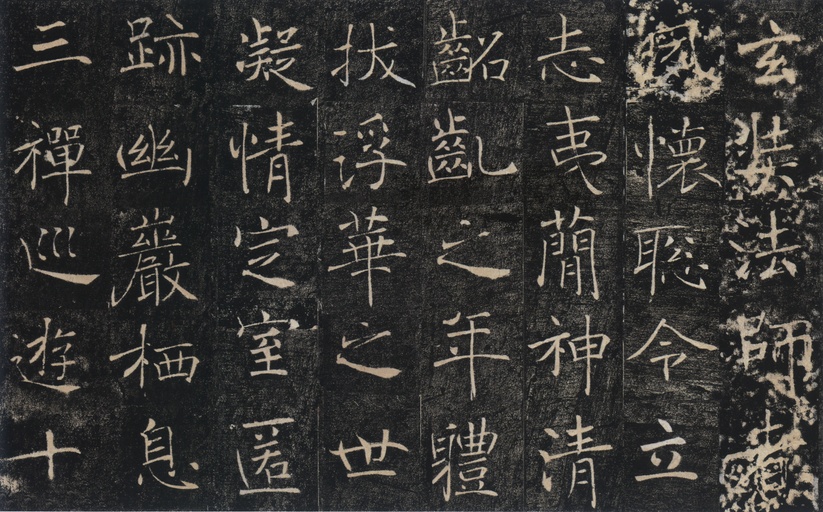 玄奘法師者
夙懷聡令立
志夷蕳神清
齠齓之年體
拔浮華之世
凝情定室匿
跡幽巖栖息
三禪巡遊十